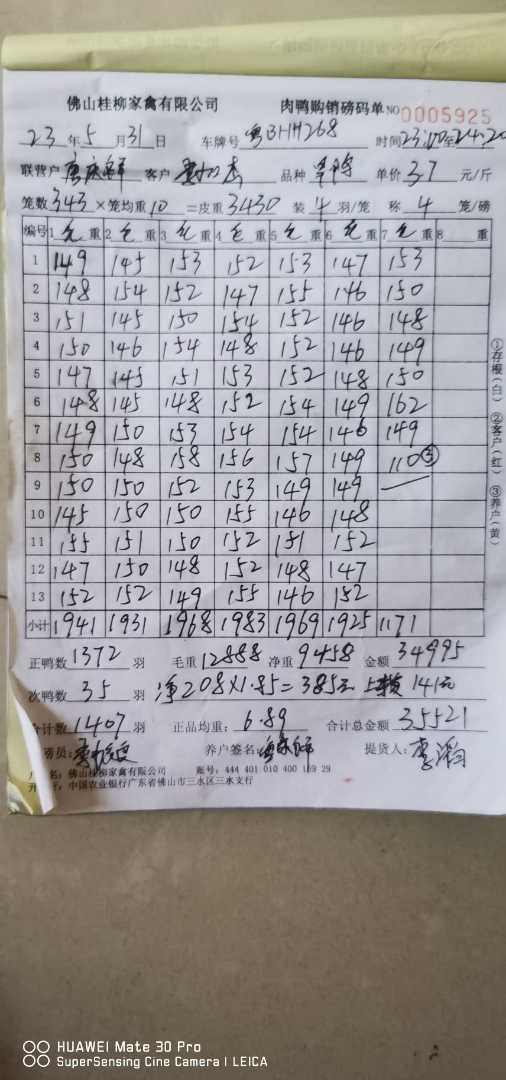 佛山桂柳家禽有限公司 肉鸭购销磅码单 NO 0005925
23 年 5 月 31 日 车牌号 时间 23:00至24:20
联营户 客户 品种 单价 3.7 元/斤
笼数 343 ×笼均重 10 =皮重 3430 装 4 羽/笼 称 4 笼/磅
编号 1 毛重 2 毛重 3 毛重 4 毛重 5 毛重 6 毛重 7 毛重 8 重
1 149 145 153 152 153 147 153
2 148 154 152 147 155 146 150
3 151 145 150 154 152 146 148
4 150 146 154 148 152 146 149
5 147 145 151 153 152 148 150
6 148 145 148 152 154 149 162
7 149 150 153 154 154 146 149
8 150 148 158 156 157 149 110 ③
9 150 150 152 153 149 149 —
10 145 150 150 155 146 148
11 155 151 150 152 151 152
12 147 150 148 152 148 147
13 152 152 149 155 146 152
小计 1941 1931 1968 1983 1969 1925 1171
正鸭数 1372 羽 毛重 12888 净重 9458 金额 34995
次鸭数 35 羽 净208×1.85=385元 141元
合计数 1407 羽 正品均重: 6.89 合计总金额 35521
磅员: 养户签名: 提货人:
户名: 佛山桂柳家禽有限公司 账号: 444 401 010 400 169 29
开户行: 中国农业银行广东省佛山市三水区三水支行
①存根(白) ②客户(红) ③养户(黄)
HUAWEI Mate 30 Pro
SuperSensing Cine Camera | LEICA